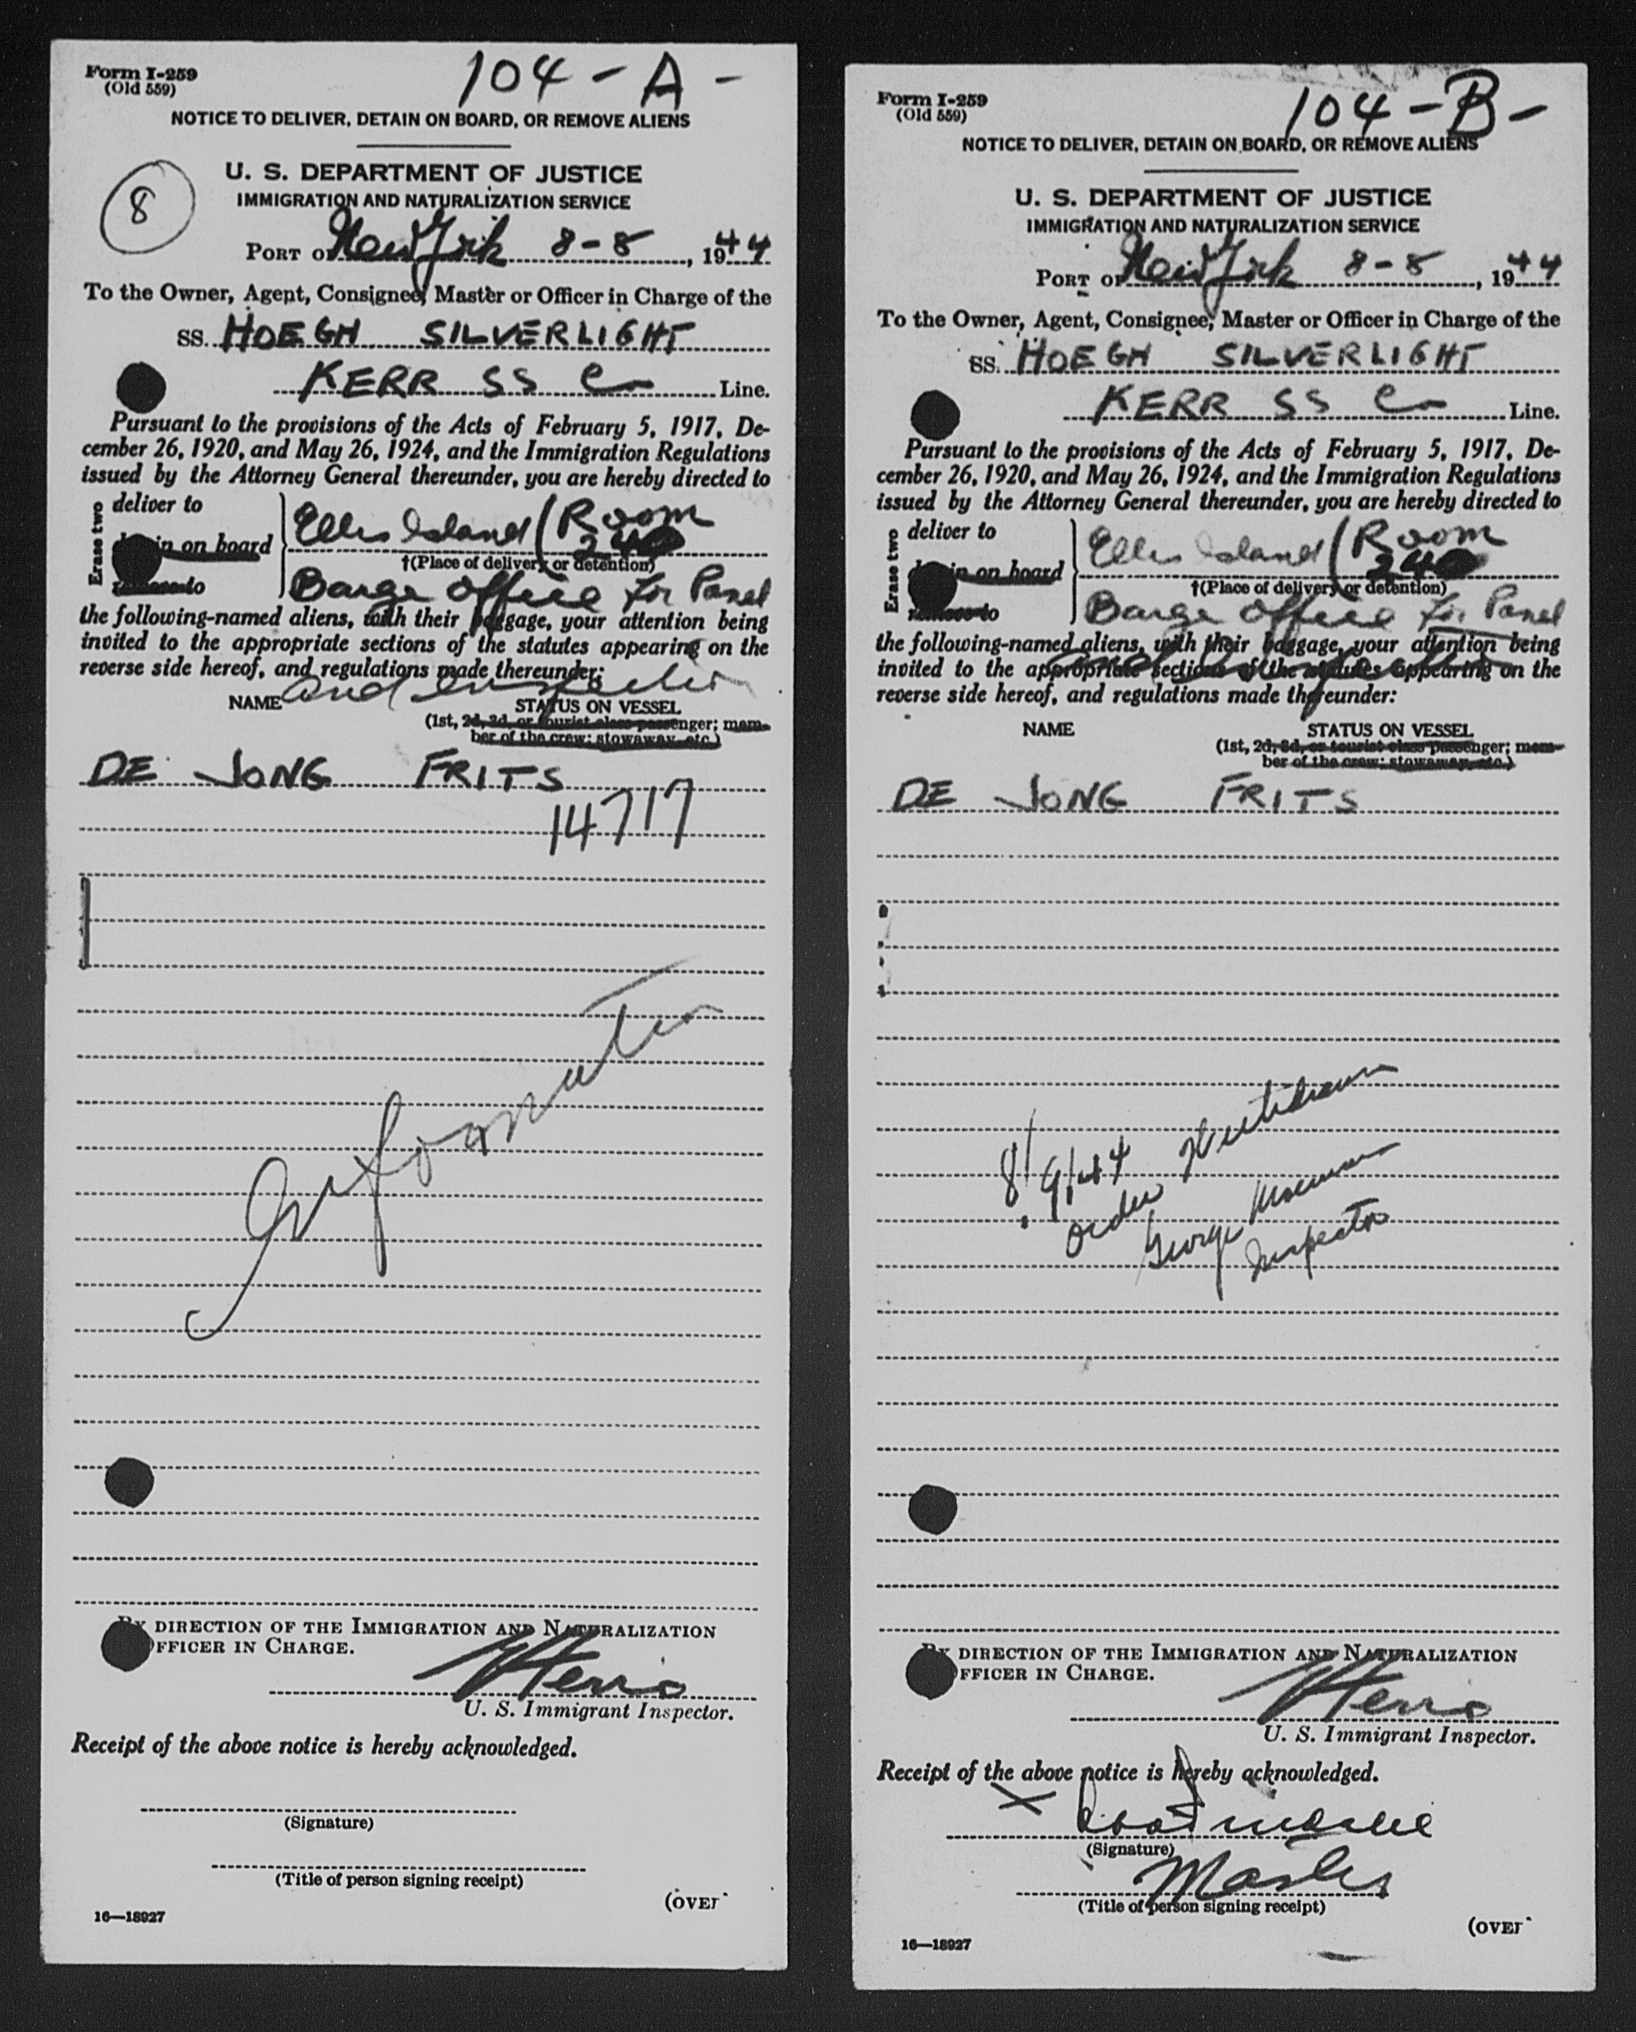 Form I-259
(Old 559)
104 - A -
NOTICE TO DELIVER, DETAIN ON BOARD, OR REMOVE ALIENS
U. S. DEPARTMENT OF JUSTICE
IMMIGRATION AND NATURALIZATION SERVICE
8
PORT OF New York 8-8, 1944
To the Owner, Agent, Consignee, Master or Officer in Charge of the
SS. HOEGH SILVERLIGHT
KERR SS Co Line.
Pursuant to the provisions of the Acts of February 5, 1917, De-
cember 26, 1920, and May 26, 1924, and the Immigration Regulations
issued by the Attorney General thereunder, you are hereby directed to
Erase two
deliver to
in on board
to
Ellis Island (Room
240
†(Place of delivery or detention)
Barge office for Panel
the following-named aliens, with their baggage, your attention being
invited to the appropriate sections of the statutes appearing on the
reverse side hereof, and regulations made thereunder:
and inspection
NAME
STATUS ON VESSEL
(1st, 2d, 3d, or tourist class passenger; mem-
ber of the crew; stowaway, etc.)
DE JONG FRITS
14717
Information
BY DIRECTION OF THE IMMIGRATION AND NATURALIZATION
OFFICER IN CHARGE.
U. S. Immigrant Inspector.
Receipt of the above notice is hereby acknowledged.
(Signature)
(Title of person signing receipt)
(OVER
16—18927
Form I-259
(Old 559)
104 - B -
NOTICE TO DELIVER, DETAIN ON BOARD, OR REMOVE ALIENS
U. S. DEPARTMENT OF JUSTICE
IMMIGRATION AND NATURALIZATION SERVICE
PORT OF New York 8-8, 1944
To the Owner, Agent, Consignee, Master or Officer in Charge of the
SS. HOEGH SILVERLIGHT
KERR SS Co Line.
Pursuant to the provisions of the Acts of February 5, 1917, De-
cember 26, 1920, and May 26, 1924, and the Immigration Regulations
issued by the Attorney General thereunder, you are hereby directed to
Erase two
deliver to
in on board
to
Ellis Island (Room
240
†(Place of delivery or detention)
Barge office for Panel
the following-named aliens, with their baggage, your attention being
invited to the appropriate sections of the statutes appearing on the
reverse side hereof, and regulations made thereunder:
NAME
STATUS ON VESSEL
(1st, 2d, 3d, or tourist class passenger; mem-
ber of the crew; stowaway, etc.)
DE JONG FRITS
8/9/44
order
George
Inspector
BY DIRECTION OF THE IMMIGRATION AND NATURALIZATION
OFFICER IN CHARGE.
U. S. Immigrant Inspector.
Receipt of the above notice is hereby acknowledged.
X
(Signature)
Master
(Title of person signing receipt)
(OVER
16—18927